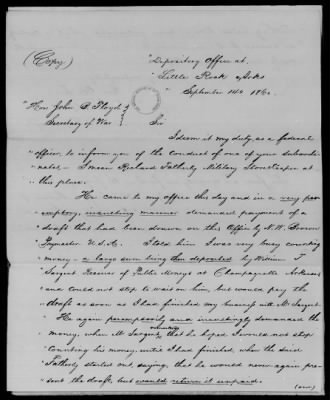 (Copy)
"Depository Office at
"Little Rock Arks
"September 14th 1860
"Hon John B. Floyd
Secretary of War
Sir
I deem it my duty, as a federal
"officer, to inform you of the conduct of one of your subordi-
"nates - I mean Richard Fatherly Military Storekeeper at
"this place.
He came to my office this day and in a very per-
"emptory, insulting manner demanded payment of a
"draft that had been drawn on this Office by N. W. Brown
"Paymaster U.S.A. I told him I was very busy counting
"money - a large sum being then deposited by William T
"Sargent Receiver of Public Moneys at Champagnolle Arkansas
"and could not stop to wait on him, but would pay the
"draft as soon as I had finished my business with Mr Sargent
"He again peremptorily and insultingly demanded the
"money, when Mr Sargent, that he hoped I would not stop
"counting his money, until I had finished, when the said
"Fatherly started out, saying, that he would never again pre-
"sent the draft, but would return it unpaid.
(over)